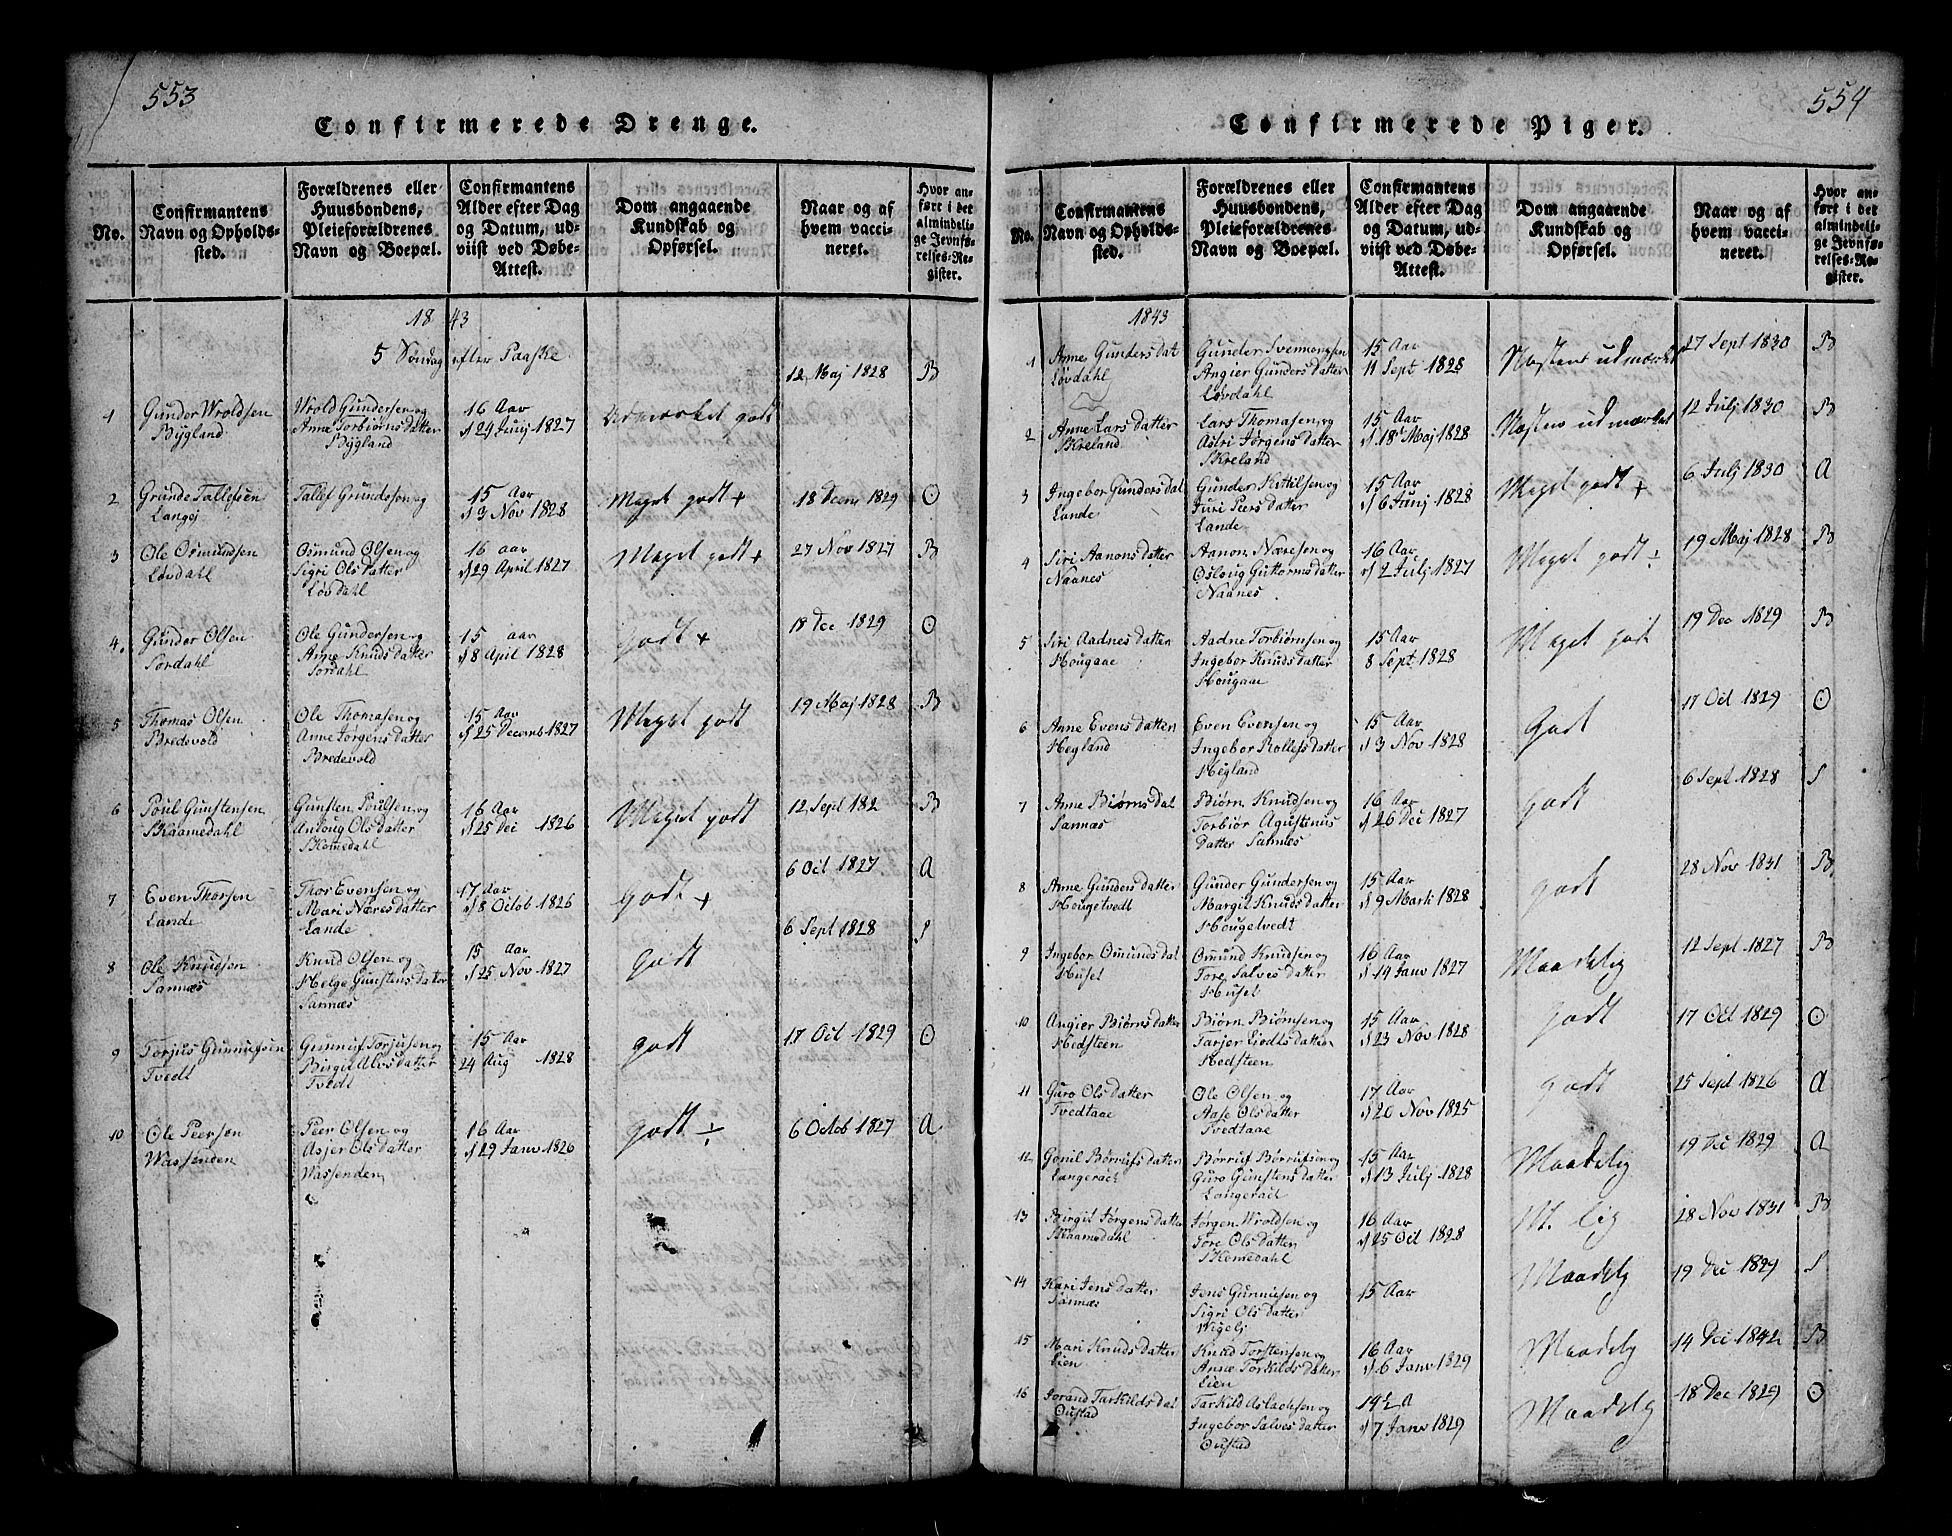 553
Confirmerede Drenge.
No.
Confirmantens Navn og Opholds-sted.
Forældrenes eller Huusbondens, Pleieforældrenes Navn og Boepæl.
Confirmantens Alder efter Dag og Datum, ud-viist ved Døbe-Attest.
Dom angaaende Kundskab og Opførsel.
Naar og af hvem vacci-neret.
Hvor an-ført i det almindeli-ge Jevnfø-relses-Re-gister.
1843
5 Søndag efter Paaske
1
Gunder Wroldsen
Bygland
Wrold Gundersen og
Anne Torbiørnsdatter
Bygland
16 Aar
d 29 Junj 1827
Udmærket godt
12 Maj 1828
B
2
Grunde Tallefsen
Langej
Tallef Grundesen og
15 Aar
d 3 Nov 1828
Meget godt +
18 Decm 1829
O
3
Ole Osmundsen
Løvdahl
Osmund Olsen og
Sigri Olsdatter
Løvdahl
16 aar
d 29 April 1827
Meget godt +
27 Nov 1827
B
4.
Gunder Olsen
Sordahl
Ole Gundersen og
Anne Knudsdatter
Sordahl
15 aar
d 8 April 1828
godt +
18 Dec 1829
O
5
Thomas Olsen
Bredevold
Ole Thomasen og
Anne Jørgensdatter
Bredevold
15 Aar
d 25 Decemb 1827
Meget godt
19 Maj 1828
B
6
Poul Gunstensen
Skaamedahl
Gunsten Poulsen og
Anloug Olsdatter
Skomedahl
16 Aar
d 25 Dei 1826
Meget godt
12 Sept 182
B
7
Even Thorsen
Lande
Thor Evensen og
Mari Næresdatter
Lande
17 Aar
d 8 Octob 1826
godt +
6 Oct 1827
A
8
Ole Knudsen
Sannæs
Knud Olsen og
Helge Gunstensdatter
Sannæs
15 Aar
d 25 Nov 1827
godt
6 Sept 1828
S
9
Torjus Gunnufsen
Tvedt
Gunnuf Torjusen og
Birgit Alvsdatter
Tvedt
15 Aar
24 Aug 1828
godt
17 Oct 1829
O
10
Ole Peersen
Wassenden
Peer Olsen og
Asjer Olsdatter
Wassenden
16 Aar
d 29 Janv 1826
godt ÷
6 Octob 1827
A
554
Confirmerede Piger.
No.
Confirmantens Navn og Opholds-sted.
Forældrenes eller Huusbondens, Pleieforældrenes Navn og Boepæl.
Confirmantens Alder efter Dag og Datum, ud-viist ved Døbe-Attest.
Dom angaaende Kundskab og Opførsel.
Naar og af hvem vacci-neret.
Hvor an-ført i det almindeli-ge Jevnfø-relses-Re-gister.
1843
1
Anne Gundersdat
Løvdahl
Gunder Svennongsen
Angier Gundersdatter
Løvdahl
15 Aar
11 Sept 1828
Næsten udmærket
27 Sept 1830
B
2
Anne Larsdatter
Skreland
Lars Thomasen og
Astri Jørgensdatter
Skreland
15 Aar
d 18 Maj 1828
Næsten udmærket
12 Julj 1830
B
3
Ingebor Gundersdat
Lande
Gunder Kittilsen og
Juri Peersdatter
Lande
15 Aar
d 6 Junj 1828
Meget godt +
6 Julj 1830
A
4
Siri Aanonsdatter
Naanes
Aanon Næresen og
Osloug Guttormsdatter
Naanes
16 Aar
d 2 Julj 1827
Meget godt ÷
19 Maj 1828
B
5
Siri Aadnesdatter
Hougaae
Aadne Torbiørnsen og
Ingebor Knudsdatter
Hougaae
15 Aar
8 Sept 1828
Meget godt
19 Dec 1829
B
6
Anne Evensdatter
Hegland
Even Evensen og
Ingebor Rollefsdatter
Hegland
15 Aar
d 3 Nov 1828
Godt
17 Oct 1829
O
7
Anne Biørnsdat
Sannæs
Biørn Knudsen og
Torbiør Agustenus
datter Sannes
16 Aar
d 26 Dec 1827
godt
6 Sept 1828
S
8
Anne Gundersdatter
Hougetvedt
Gunder Gundersen og
Margit Knudsdatter
Hougetvedt
15 Aar
d 9 Marti 1828
godt
28 Nov 1831
B
9
Ingebor Omundsdat
Huset
Omund Knudsen og
Tore Salvesdatter
Huset
16 Aar
d 14 Janv 1827
Maadelig
12 Sept 1827
B
10
Angier Biørnsdatter
Hedsteen
Biørn Biørnsen og
Tarjer Liodtsdatter
Hedsteen
15 Aar
d 23 Nov 1828
godt
17 Oct 1829
O
11
Guro Olsdatter
Tvedtaae
Ole Olsen og
Aase Olsdatter
Tvedtaae
17 Aar
d 20 Nov 1825
godt
25 Sept 1826
A
12
Gonil Børrufsdatter
Langerach
Børruf Børrufsen og
Guro Gunstensdatter
Langerach
15 Aar
d 13 Julj 1828
Maadelig
19 Dec 1829
A
13
Birgit Jørgensdatter
Skaamedahl
Jørgen Wroldsen og
Tore Olsdatter
Skomedahl
16 Aar
d 25 Oct 1828
M. lig
28 Nov 1831
B
14
Kari Jensdatter
Sannæs
Jens Gunniusen og
Sigri Olsdatter
Wigelj
15 Aar
Maadelig
19 Dec 1829
S
15
Mari Knudsdatter
Lien
Knud Torstensen og
Anne Torkildsdatter
Lien
16 Aar
d. 6 Janv 1829
Maadelig
14 Dec 1842
B
16
Jorand Tarkildsdat
Oustad
Tarkild Aslachsen og
Ingebor Salvesdatter
Oustad
14½ A
d 7 Janv 1829
Maadelig
18 Dec 1829
O